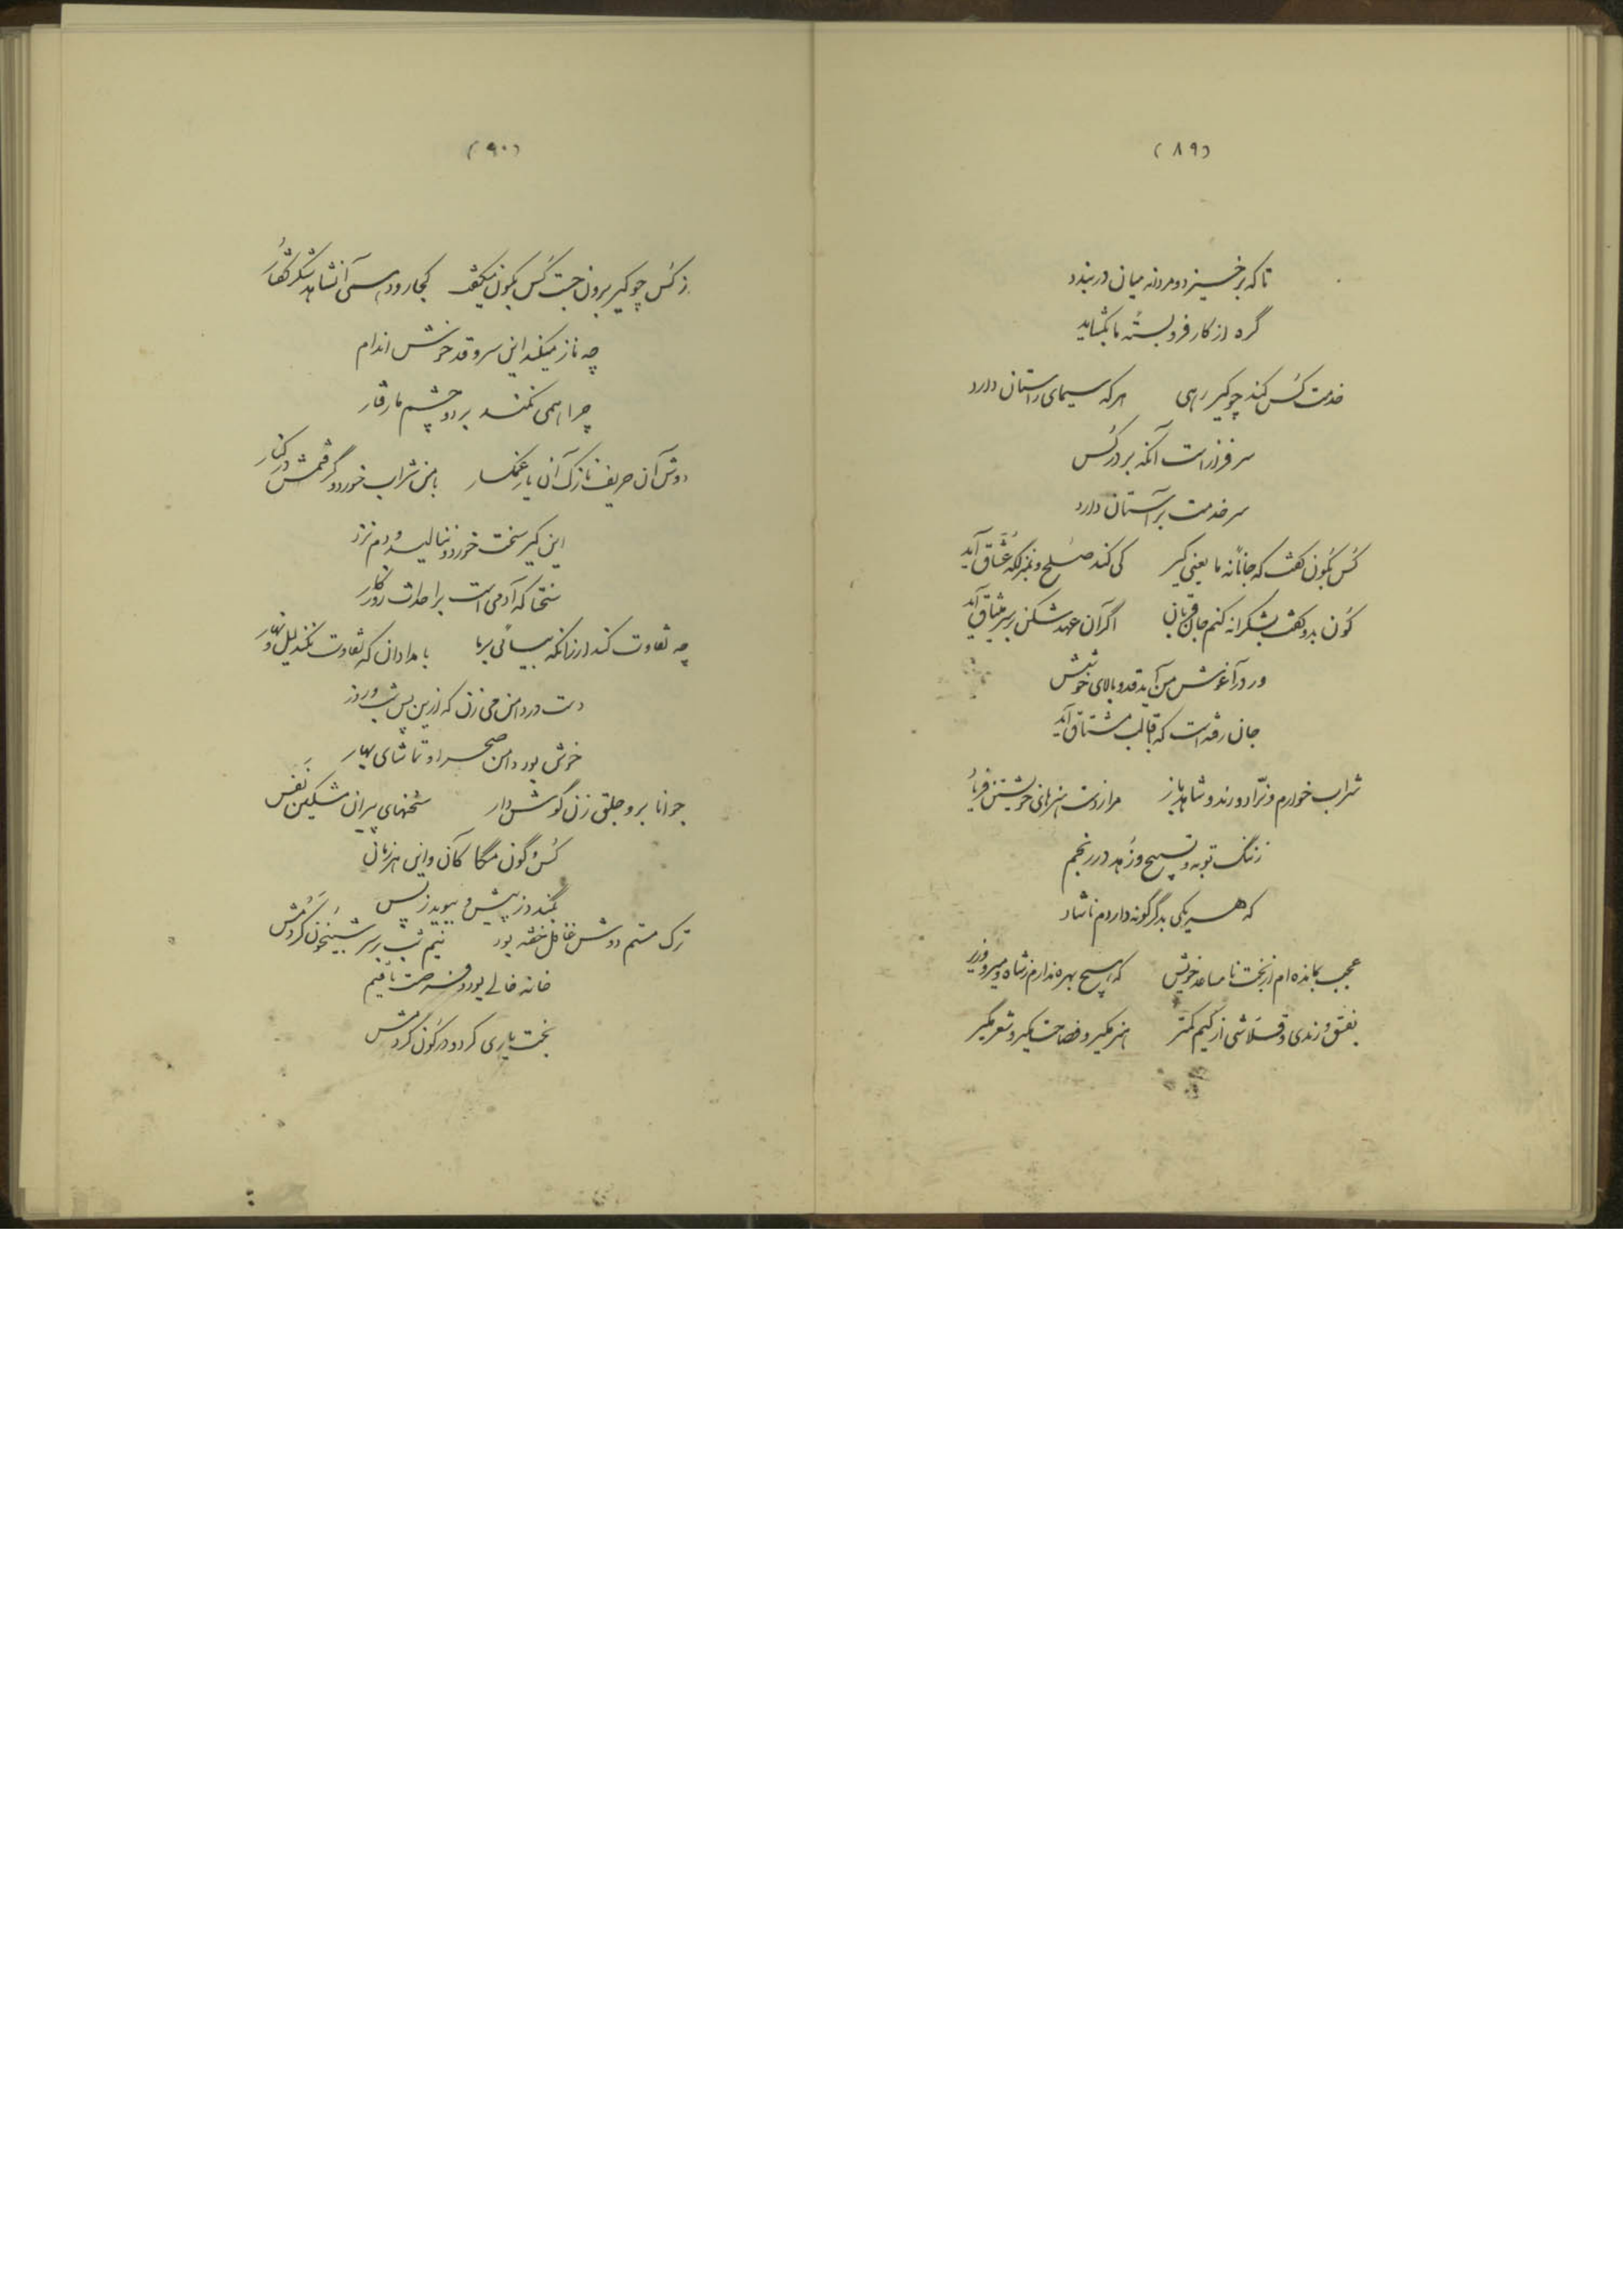 (۸۹)
تا که برخیزد و مردانه میان دربندد
گره از کار فروبستهٔ ما بگشاید
خدمت کُس کند چو کیر رهی هرکه سیمای راستان دارد
سرفرازست آنکه بر در کُس
سر خدمت بر آستان دارد
کُس بکون گفت که جانانه ما یعنی کیر کی کند صلح و بنزلگه عُشّاق آید
کون بدو گفت بشکرانه کنم جان قربان اگر آن عهدشکن بر سر میثاق آید
ور در آغوش من آید قد و بالای خوشش
جان رفته است که با قالب مشتاق آید
شراب خوارم و نرّاد و رند و شاهدباز مرا ز دست هنرهای خویشتن فریاد
ز ننگ توبه و تسبیح و زهد در رنجم
که هر یکی بدگرگونه داردم ناشاد
عجب بمانده‌ام از بخت نامساعد خویش که هیچ بهره ندارم ز شاه و میر و وزیر
بفسق و رندی و قلّاشی از کیم کمتر هنر مگیر و فصاحت مگیر و شعر مگیر
(۹۰)
ز کُس چو کیر برون جست کُس بکون میگفت کجا رود همی آن شاهد شکرگفتار
چه ناز میکند این سروقد خوش اندام
چرا همی نکند بر دو چشم ما رفتار
دوش آن حریف نازک آن یار غمگسار با من شراب خورد و گرفتمش در کنار
این کیر سخت خورد و ننالید و دم نزد
سختا که آدمی است بر احداث روزگار
چه تفاوت کند ار زانکه بیائی بر ما بامدادان که تفاوت نکند لیل و نهار
دست در دامن می زن که ازین پس شب و روز
خوش بود دامن صحرا و تماشای بهار
جوانا برو جلق زن گوش دار سخنهای پیران مشکین نَفَس
کُس و کون مگا کان و این هر زمان
بگندد ز پیش و ببوید ز پس
ترک مستم دوش غافل خفته بود نیم شب بر سر شبیخون کردمش
خانه خالی بود و فرصت یافتیم
بخت یاری کرد و در کون کردمش